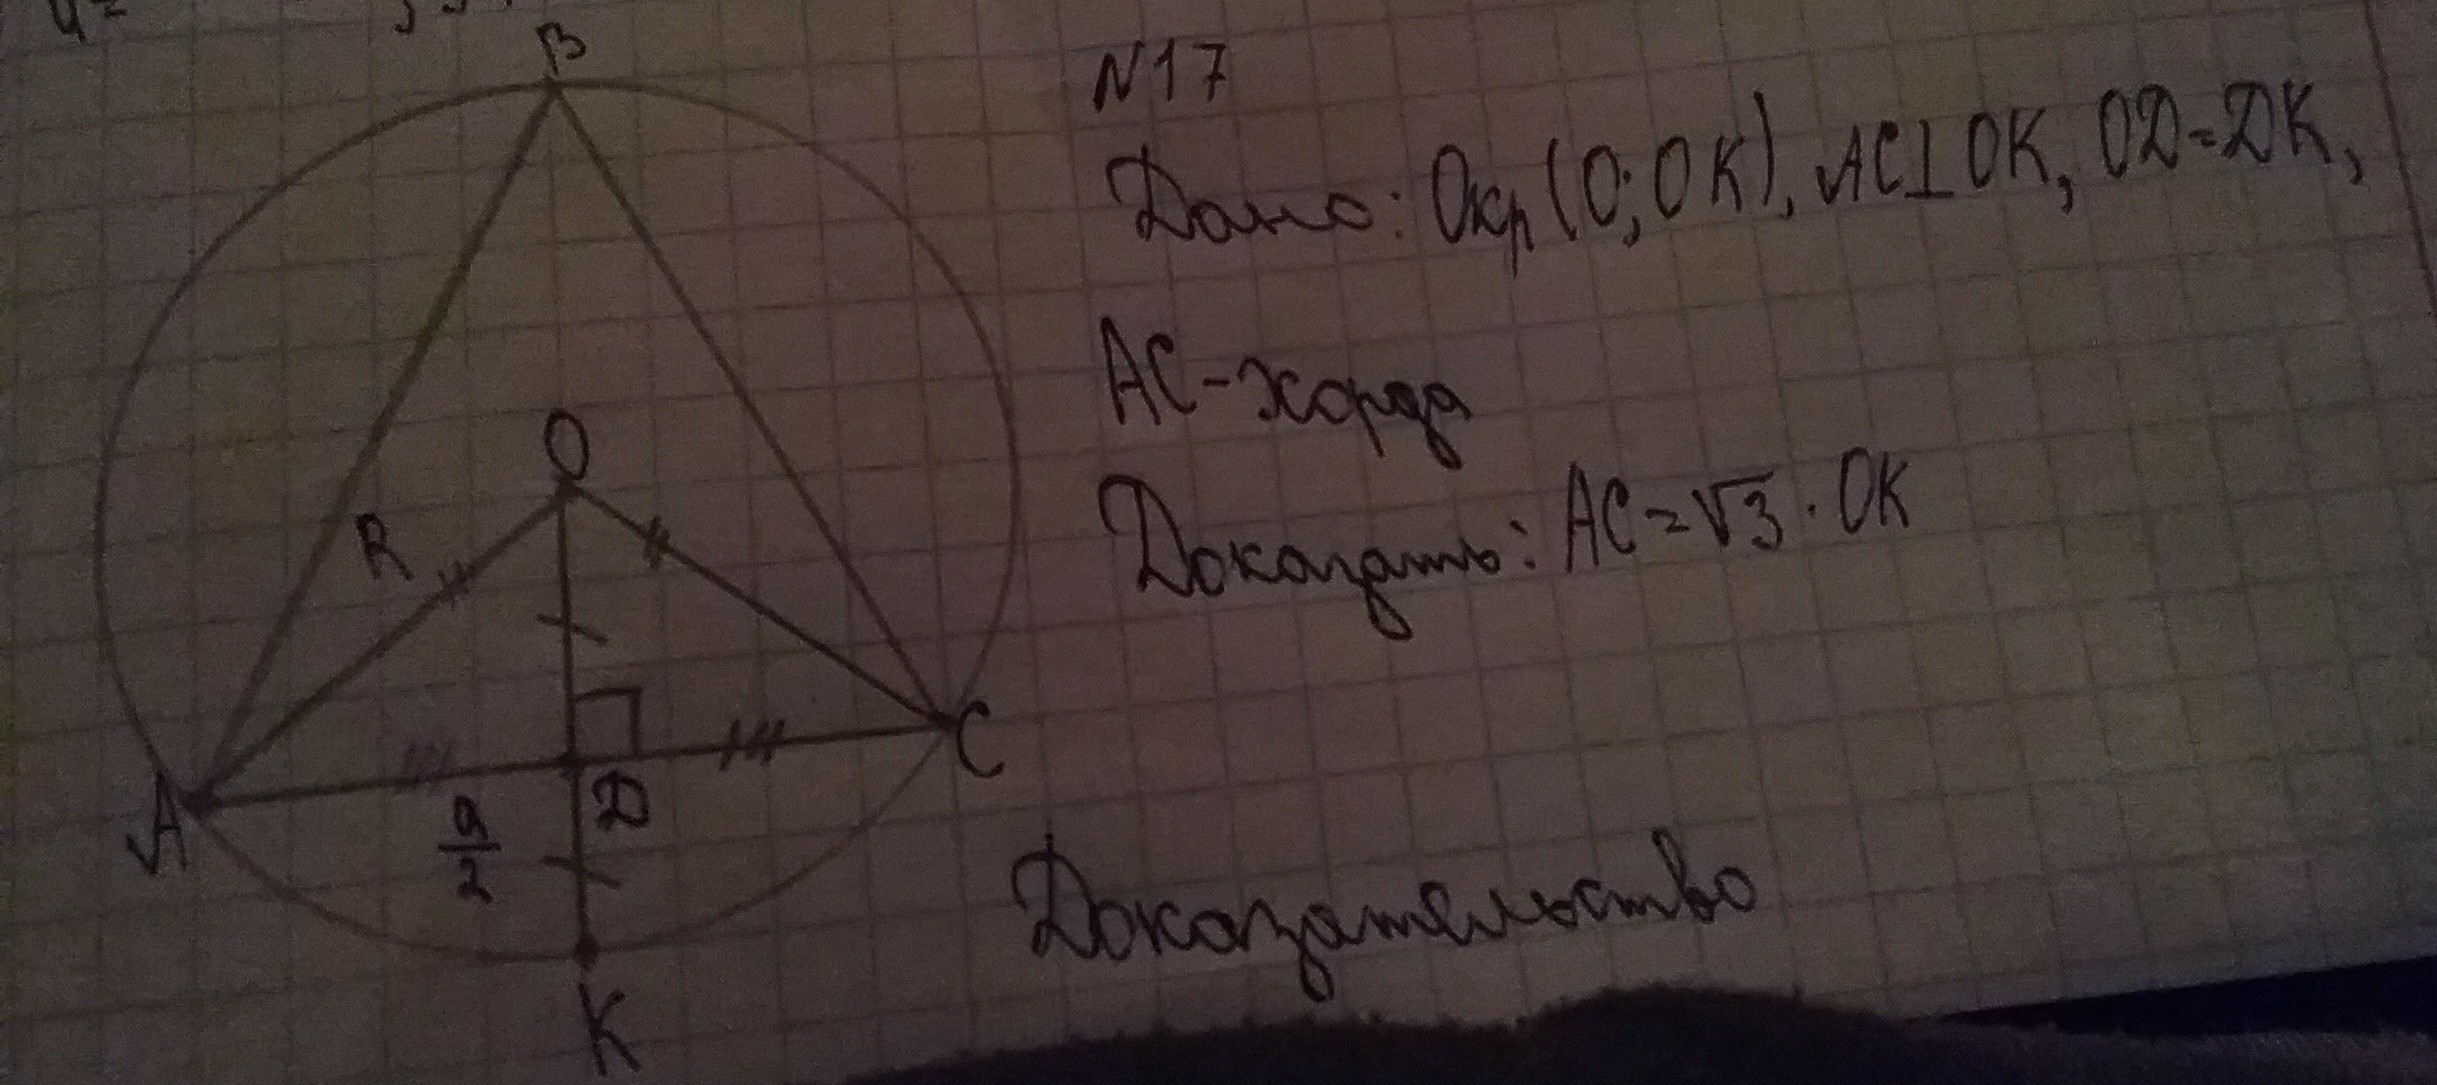 B
N17
Дано: Окр(O; OK), AC⊥OK, OD=DK,
AC-хорда
O
Доказать: AC=√3·OK
R
C
A
a/2
D
Доказательство
K